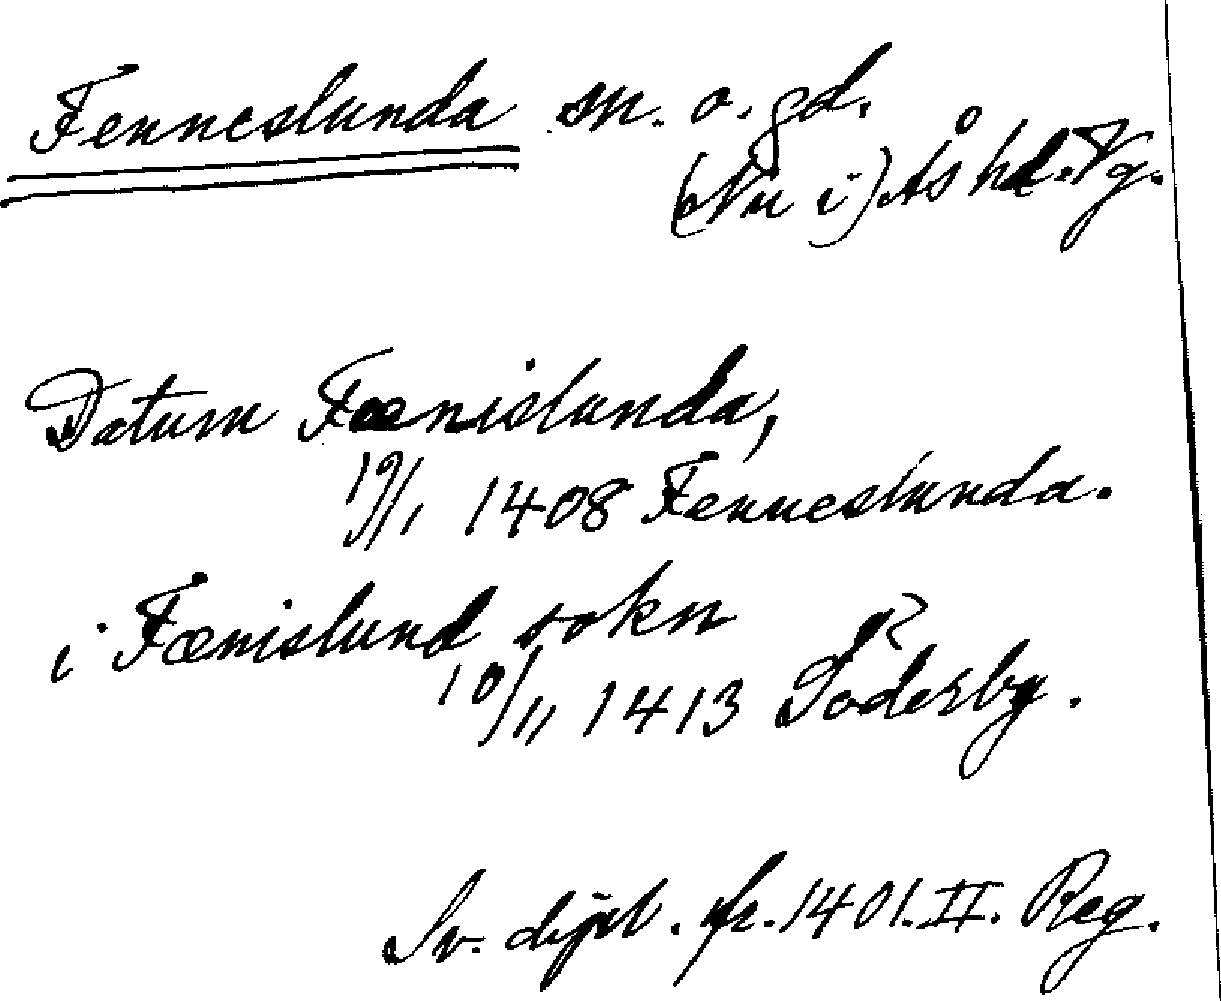 Fenneslunda sn. o. gd.
(Nu i) Ås hd. Vg.
Datum Fænislunda,
19/1 1408 Fenneslunda.
i Fænislund sokn
10/11 1413 Söderby.
Sv. dipl. fr. 1401. II. Reg.